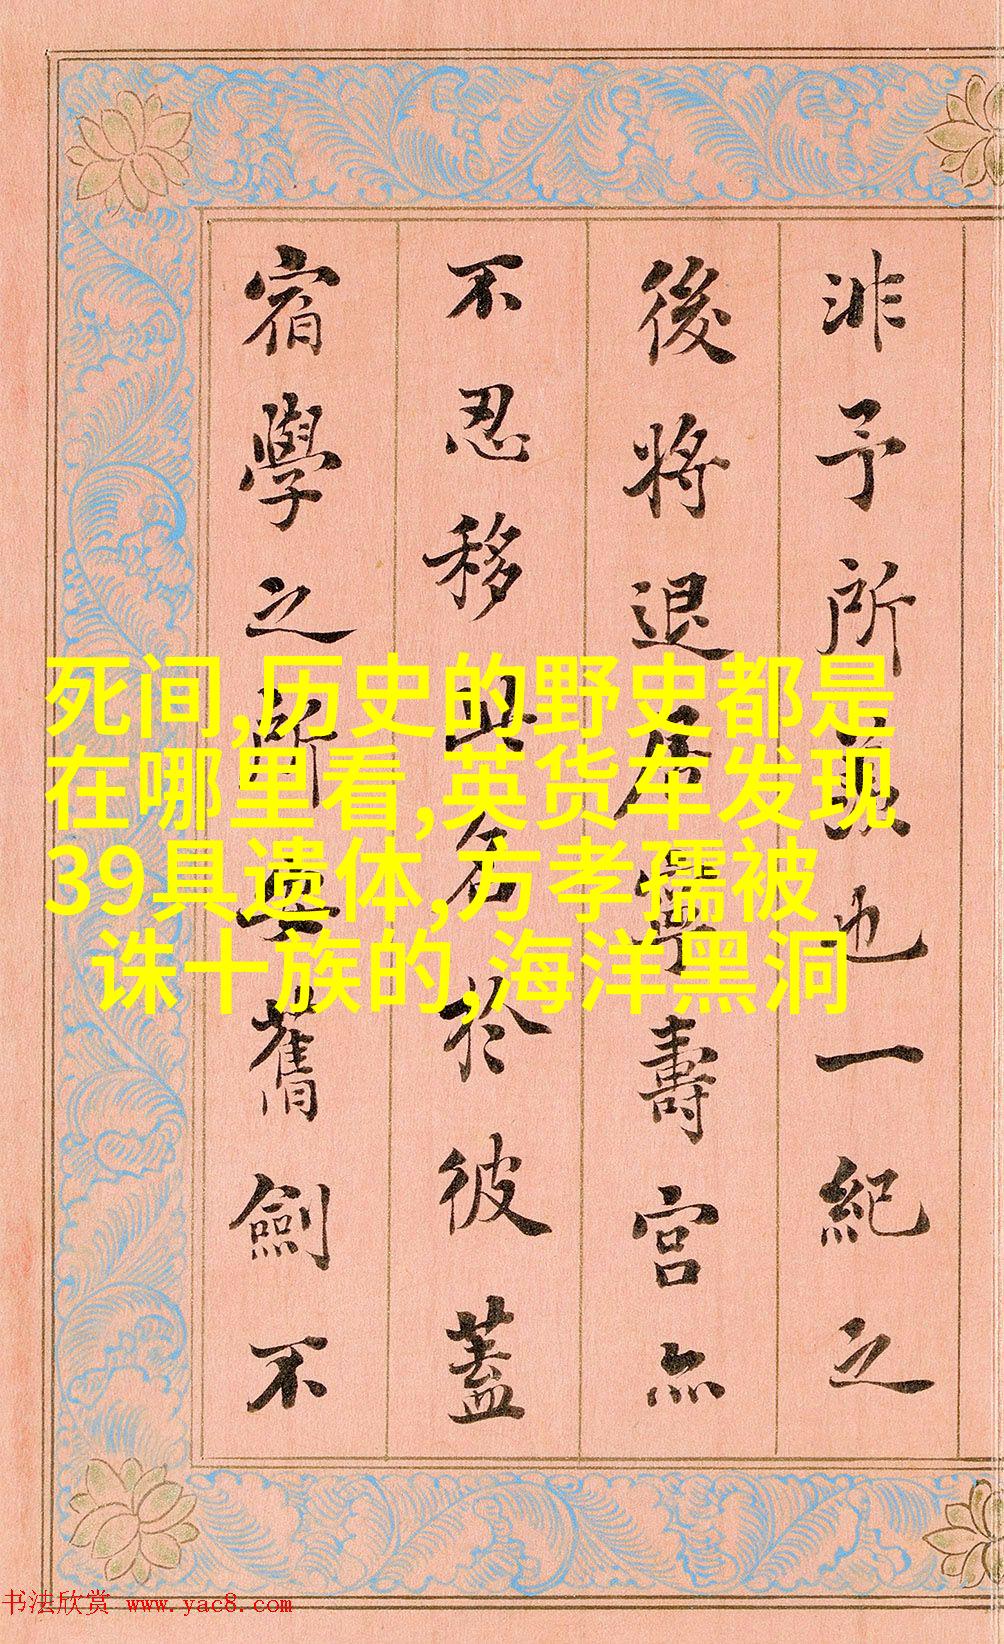 非予所也一紀之
後將退居寧壽宮亦
不忍移其名於彼蓋
宿學之所舊劍不
死间,历史的野史都是
在哪里看,英货车发现
39具遗体,方孝孺被
诛十族的,海洋黑洞
书法欣赏 www.yac8.com